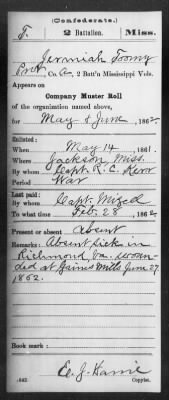 (Confederate.)
T. 2 Battalion. Miss.
Jermiah Toomy
Pvt, Co. A, 2 Batt'n Mississippi Vols.
Appears on
Company Muster Roll
of the organization named above,
for May & June, 1862.
Enlisted:
When May 14, 1861.
Where Jackson, Miss.
By whom Capt. R. C. Kerr
Period War
Last paid:
By whom Capt. Mized
To what time Feb. 28, 1862.
Present or absent Absent
Remarks: Absent sick in
Richmond, Va. Woun-
ded at Gaines Mills June 27,
1862.
Book mark:
(642) Copyist.